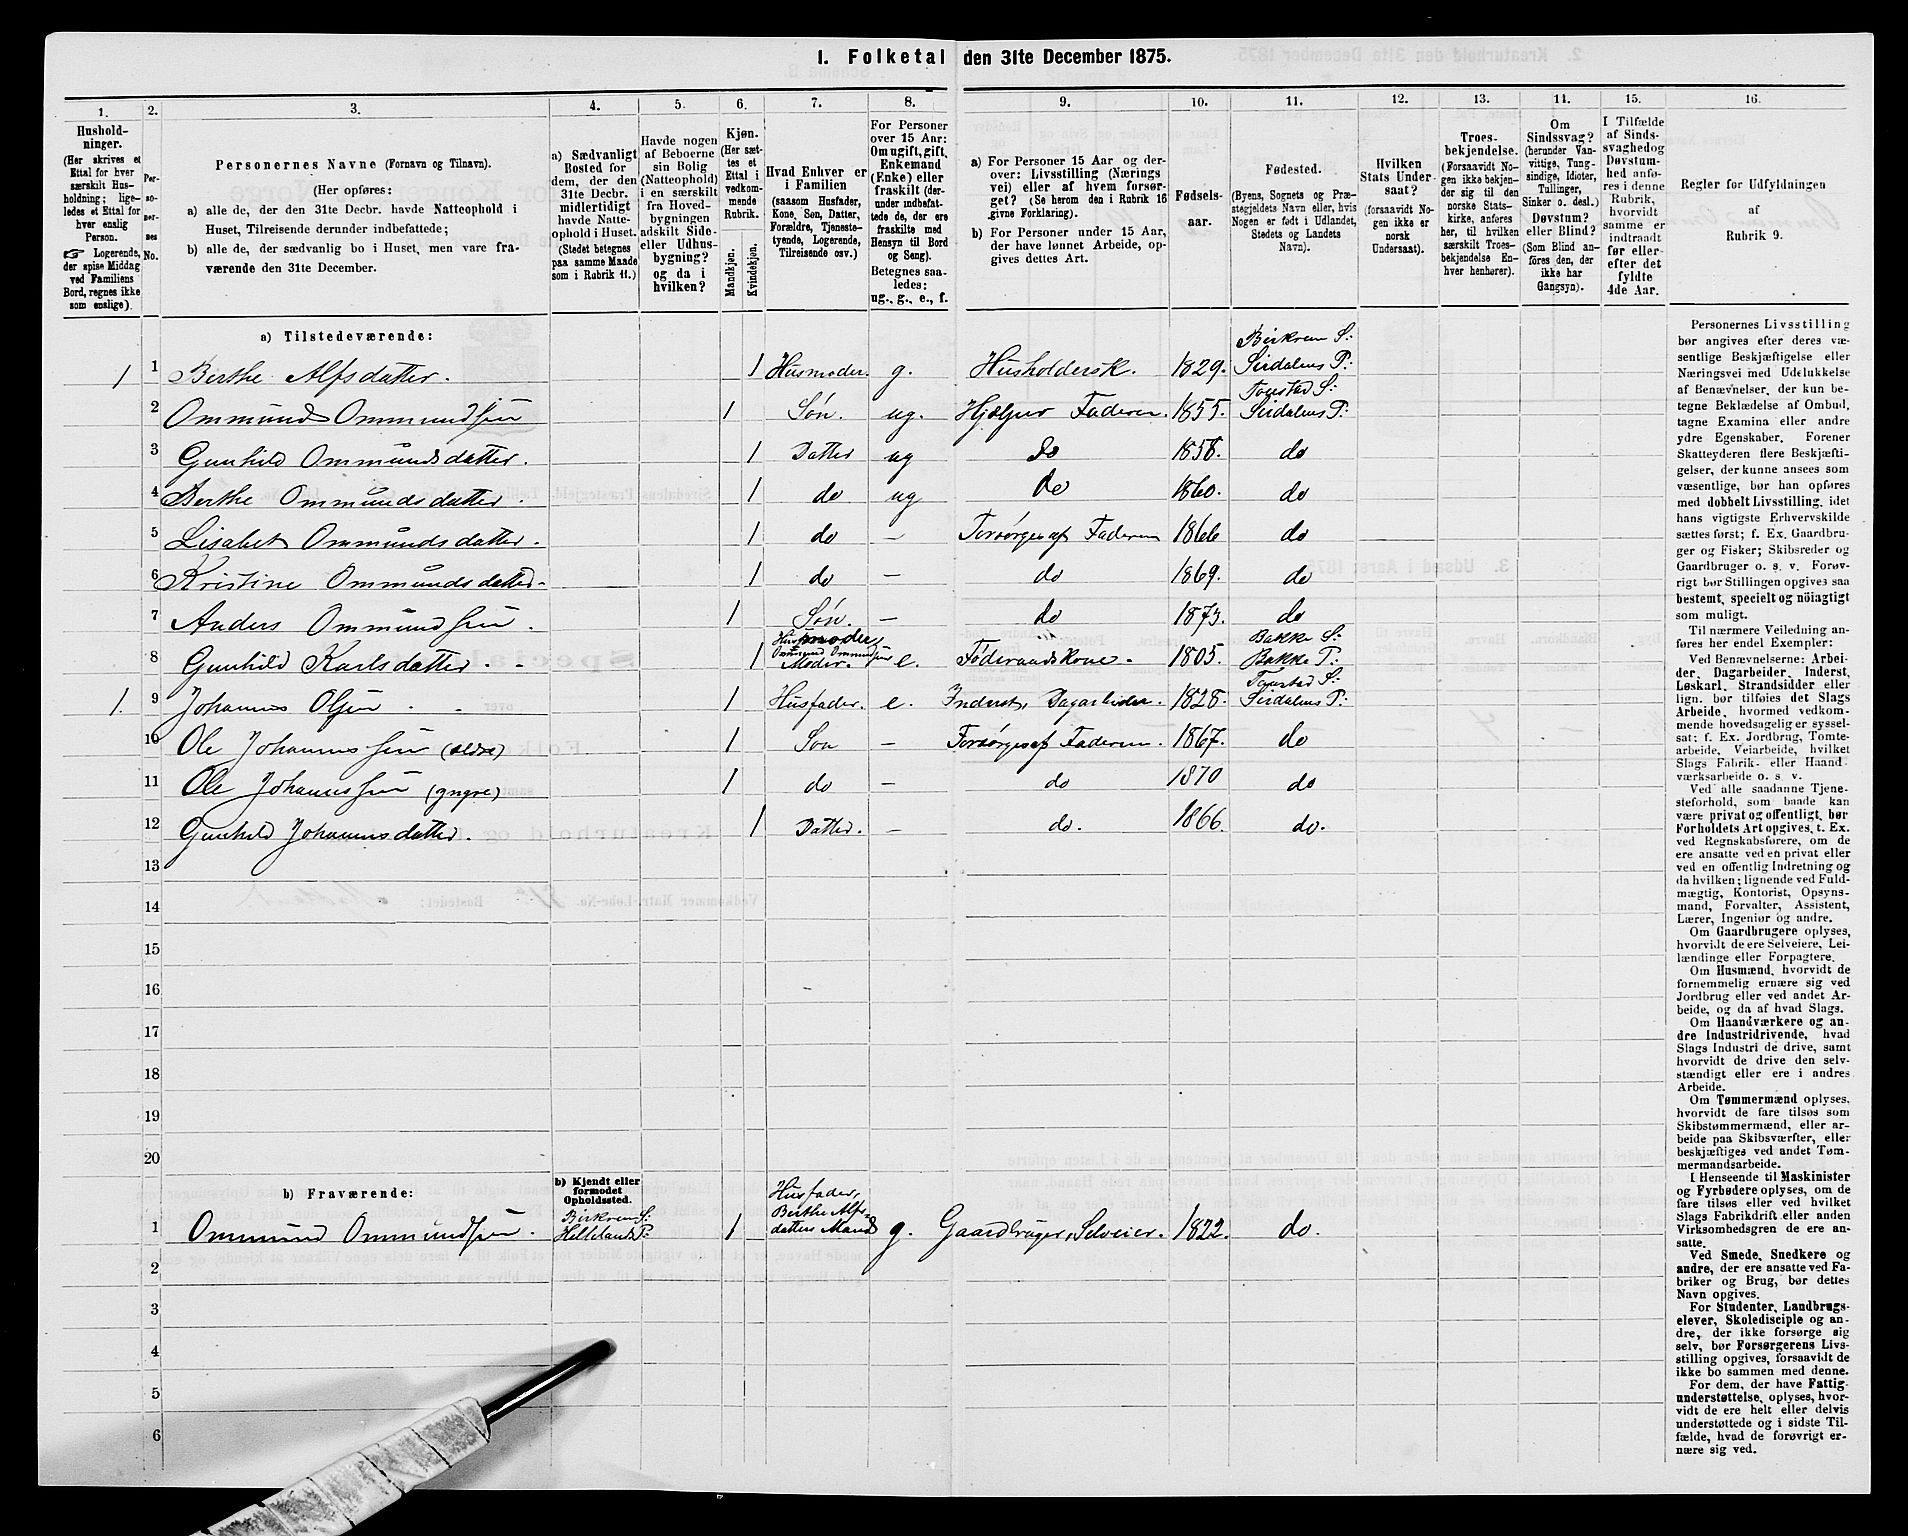 1. Folketal den 31te December 1875.
1.
2.
3.
4.
5.
6.
7.
8.
9.
10.
11.
12.
13.
14.
15.
16.
Hushold-
ninger.
(Her skrives et
Ettal for hver
særskilt Hus-
holdning; lige-
ledes et Ettal for
hver enslig
Person.
☞ Logerende,
der spise Middag
ved Familiens
Bord, regnes ikke
som enslige).
Per-
so-
ner-
nes
No.
Personernes Navne (Fornavn og Tilnavn).
(Her opføres:
a) alle de, der den 31te Decbr. havde Natteophold i
Huset, Tilreisende derunder indbefattede;
b) alle de, der sædvanlig bo i Huset, men vare fra-
værende den 31te December.
a) Sædvanligt
Bosted for
dem, der den
31te Decbr.
midlertidigt
havde Natte-
ophold i Huset.
(Stedet betegnes
paa samme Maade
som i Rubrik 11.)
Havde nogen
af Beboerne
sin Bolig
(Natteophold)
i en særskilt
fra Hoved-
bygningen
adskilt Side-
eller Udhus-
bygning?
og da i
hvilken?
Kjøn.
(Her sæt-
tes et
Ettal i
vedkom-
mende
Rubrik.
Mandkjøn.
Kvindekjøn.
Hvad Enhver er
i Familien
(saasom Husfader,
Kone, Søn, Datter,
Forældre, Tjeneste-
tyende, Logerende,
Tilreisende osv.)
For Personer
over 15 Aar:
Om ugift, gift,
Enkemand
(Enke) eller
fraskilt (der-
under indbefat-
tede de, der ere
fraskilte med
Hensyn til Bord
og Seng).
Betegnes saa-
ledes:
ug., g., e., f.
a) For Personer 15 Aar og der-
over: Livsstilling (Nærings-
vei) eller af hvem forsør-
get? (Se herom den i Rubrik 16
givne Forklaring).
b) For Personer under 15 Aar,
der have lønnet Arbeide, op-
gives dettes Art.
Fødsels-
aar.
Fødested.
(Byens, Sognets og Præ-
stegjeldets Navn eller, hvis
Nogen er født i Udlandet,
Stedets og Landets
Navn).
Hvilken
Stats Under-
saat?
(forsaavidt No-
gen ikke er
norsk
Undersaat).
Troes-
bekjendelse.
(Forsaavidt No-
gen ikke bekjen-
der sig til den
norske Stats-
kirke, anføres
her, til hvilken
særskilt Troes-
bekjendelse En-
hver henhører).
Om
Sindssvag?
(herunder Van-
vittige, Tung-
sindige, Idioter,
Tullinger,
Sinker o. desl.)
Døvstum?
eller Blind?
(Som Blind an-
føres den, der
ikke har
Gangsyn).
I Tilfælde
af Sinds-
svaghedog
Døvstum-
hed anfø-
res i denne
Rubrik,
hvorvidt
samme er
indtraadt
før eller
efter det
fyldte
4de Aar.
Regler for Udfyldningen
af
Rubrik 9.
a) Tilstedeværende:
Birkrem S:
1 1 Berthe Alfsdatter. 1 Husmoder. g. Husholdersk. 1829. Sirdalens P:
Tonstad S:
2 Ommund Ommundsen 1 Søn. ug. Hjælper Faderen. 1855. Sirdalens P:
3 Gunhild Ommundsdatter. 1 Datter ug do 1858. do
4 Berthe Ommundsdatter. 1 do ug do 1860. do
5 Lisabet Ommundsdatter. 1 do — Forsørges af Faderen 1866 do
6 Kristine Ommundsdatter. 1 do — do 1869. do
7 Anders Ommundsen. 1 Søn. — do 1873. do
Husmoder,
Ommund Ommundsen
Bakke S:
8 Gunhild Karlsdatter. 1 Moder. e. Føderaadskone. 1805. Bakke P:
Tonstad S:
1 9 Johannes Olsen 1 Husfader. e. Inderst, Dagarbeider. 1828. Sirdalens P:
10 Ole Johannessen (ældre) 1 Søn — Forsørges af Faderen. 1867. do
11 Ole Johannessen (yngre) 1 do — do 1870 do
12 Gunhild Johannesdatter. 1 Datter. — do. 1866. do.
13
14
15
16
17
18
19
20
b) Fraværende:
b) Kjendt eller
formodet
Opholdssted.
Husfader,
Birkrem S:
Berthe Alfs-
1 Ommund Ommundsen Hellelands P: 1 datters Mand g. Gaardbruger, Selveier. 1822. do.
2
3
4
5
6
Personernes Livsstilling
bør angives efter deres væ-
sentlige Beskjæftigelse eller
Næringsvei med Udelukkelse
af Benævnelser, der kun be-
tegne Beklædelse af Ombud,
tagne Examina eller andre
ydre Egenskaber. Forener
Skatteyderen flere Beskjæfti-
gelser, der kunne ansees som
væsentlige, bør han opføres
med dobbelt Livsstilling, idet
hans vigtigste Erhvervskilde
sættes først; f. Ex. Gaardbru-
ger og Fisker; Skibsreder og
Gaardbruger o. s. v. Forøv-
rigt bør Stillingen opgives saa
bestemt, specielt og nöiagtigt
som muligt.
Til nærmere Veiledning an-
føres her endel Exempler:
Ved Benævnelserne: Arbei-
der, Dagarbeider, Inderst,
Løskarl, Strandsidder eller
lign. bør tilføies det Slags
Arbeide, hvormed vedkom-
mende hovedsagelig er syssel-
sat; f. Ex. Jordbrug, Tomte-
arbeide, Veiarbeide, hvilket
Slags Fabrik- eller Haand-
værksarbeide o. s. v.
Ved alle saadanne Tjene-
steforhold, som baade kan
være privat og offentligt, bør
Forholdets Art opgives, t. Ex.
ved Regnskabsførere, om de
ere ansatte ved en privat eller
ved en offentlig Indretning og
da hvilken; lignende ved Fuld-
mægtig, Kontorist, Opsyns-
mand, Forvalter, Assistent,
Lærer, Ingeniør og andre.
Om Gaardbrugere oplyses,
hvorvidt de ere Selveiere, Lei-
lændinge eller Forpagtere.
Om Husmænd, hvorvidt de
fornemmelig ernære sig ved
Jordbrug eller ved andet Ar-
beide, og da af hvad Slags.
Om Haandværkere og an-
dre Industridrivende, hvad
Slags Industri de drive, samt
hvorvidt de drive den selv-
stændigt eller ere i andres
Arbeide.
Om Tømmermænd oplyses,
hvorvidt de fare tilsøs som
Skibstømmermænd, eller ar-
beide paa Skibsværfter, eller
beskjæftiges ved andet Tøm-
mermandsarbeide.
I Henseende til Maskinister
og Fyrbødere oplyses, om de
fare tilsøs eller ved hvilket
Slags Fabrikdrift eller anden
Virksomhedsgren de ere an-
satte.
Ved Smede, Snedkere og
andre, der ere ansatte ved Fa-
briker og Brug, bør dettes
Navn opgives.
For Studenter, Landbrugs-
elever, Skoledisciple og an-
dre, der ikke forsørge sig
selv, bør Forsørgerens Livs-
stilling opgives, forsaavidt de
ikke bo sammen med denne.
For dem, der have Fattig-
understøttelse, oplyses, hvor-
vidt de ere helt eller delvis
understøttede og i sidste Til-
fælde, hvad de forøvrigt er-
nære sig ved.